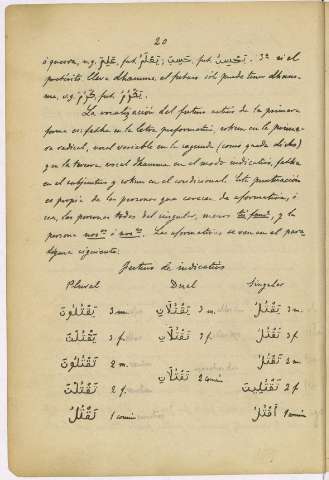 20
ó quesra, v.g. عَلِمَ, fut. يَعْلَمُ; حَسِبَ, fut. يَحْسِبُ. 3º si el
pretérito lleva dhamma, el futuro sólo puede tener dham-
ma, v.g. fut.
La vocalización del futuro activo de la primera
forma es: fatha en la letra preformativa, sokun en la prime-
ra radical, vocal variable en la segunda (como queda dicho)
y en la tercera, vocal dhamma en el modo indicativo, fatha
en el subjuntivo y sokun en el condicional. Esta puntuación
es propia de las personas que carecen de aformativos, ó
sea, las personas todas del singular, menos tú fem., y la
persona nos. ó nosos. Las aformativas se ven en el para-
digma siguiente:
Futuro de indicativo
Plural Dual Singular
يَقْتُلُونَ 3 m. يَقْتُلَانِ 3 m. يَقْتُلُ 3 m.
3 f. تَقْتُلَانِ 3 f. تَقْتُلُ 3 f.
تَقْتُلُونَ 2 m. تَقْتُلَانِ 2 común تَقْتُلُ 2 m.
2 f. تَقْتُلِينَ 2 f.
نَقْتُلُ 1 común أَقْتُلُ 1 común